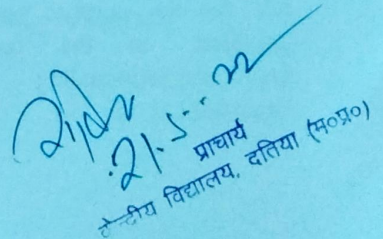 21.5..22
प्राचार्य
केन्द्रीय विद्यालय, दतिया (म०प्र०)